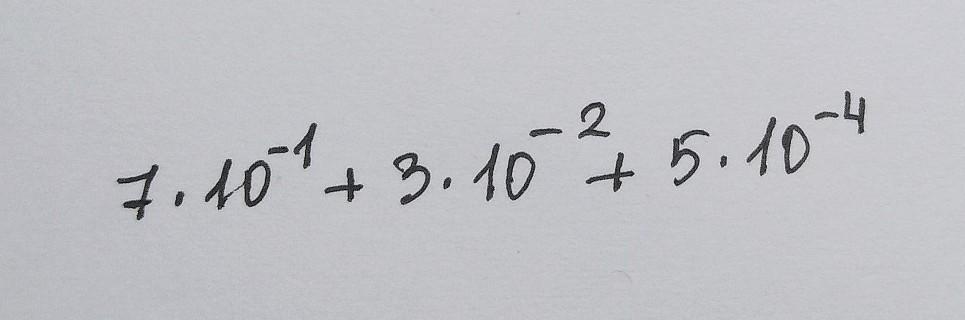 7·10⁻¹ + 3·10⁻² + 5·10⁻⁴